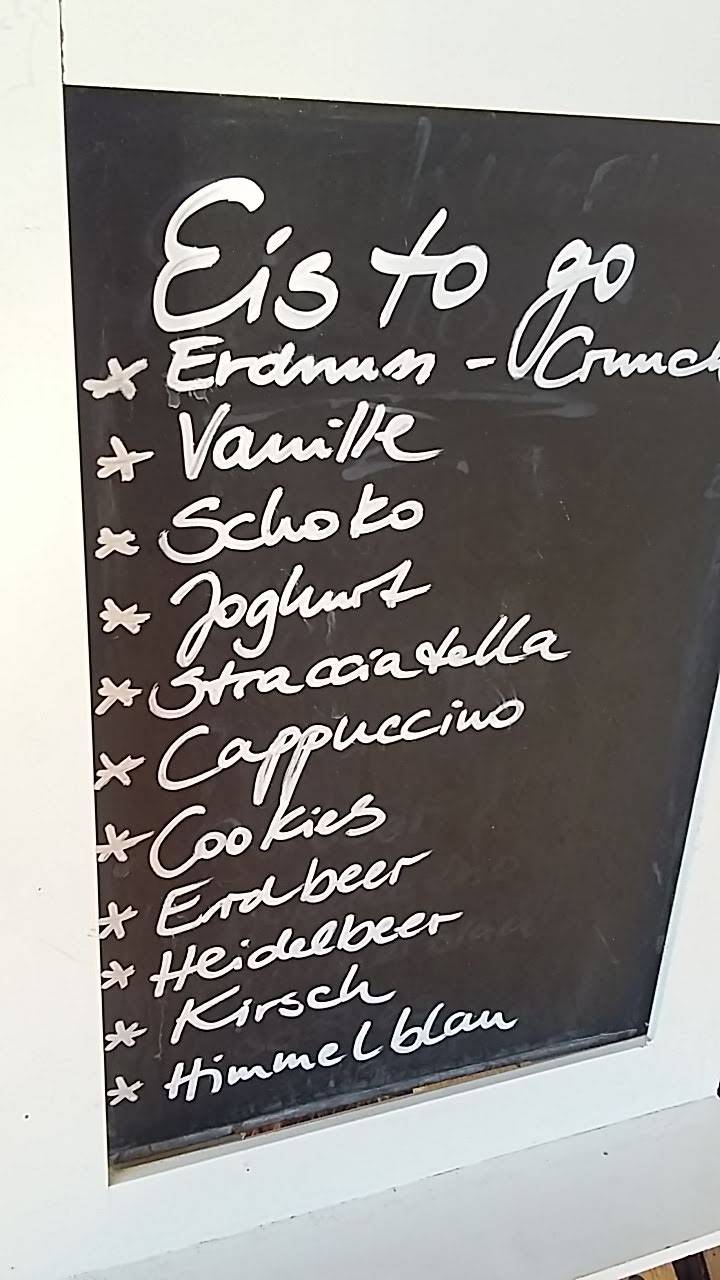 Eis to go
* Erdnuss - Crunch
* Vanille
* Schoko
* Joghurt
* Stracciatella
* Cappuccino
* Cookies
* Erdbeer
* Heidelbeer
* Kirsch
* Himmelblau